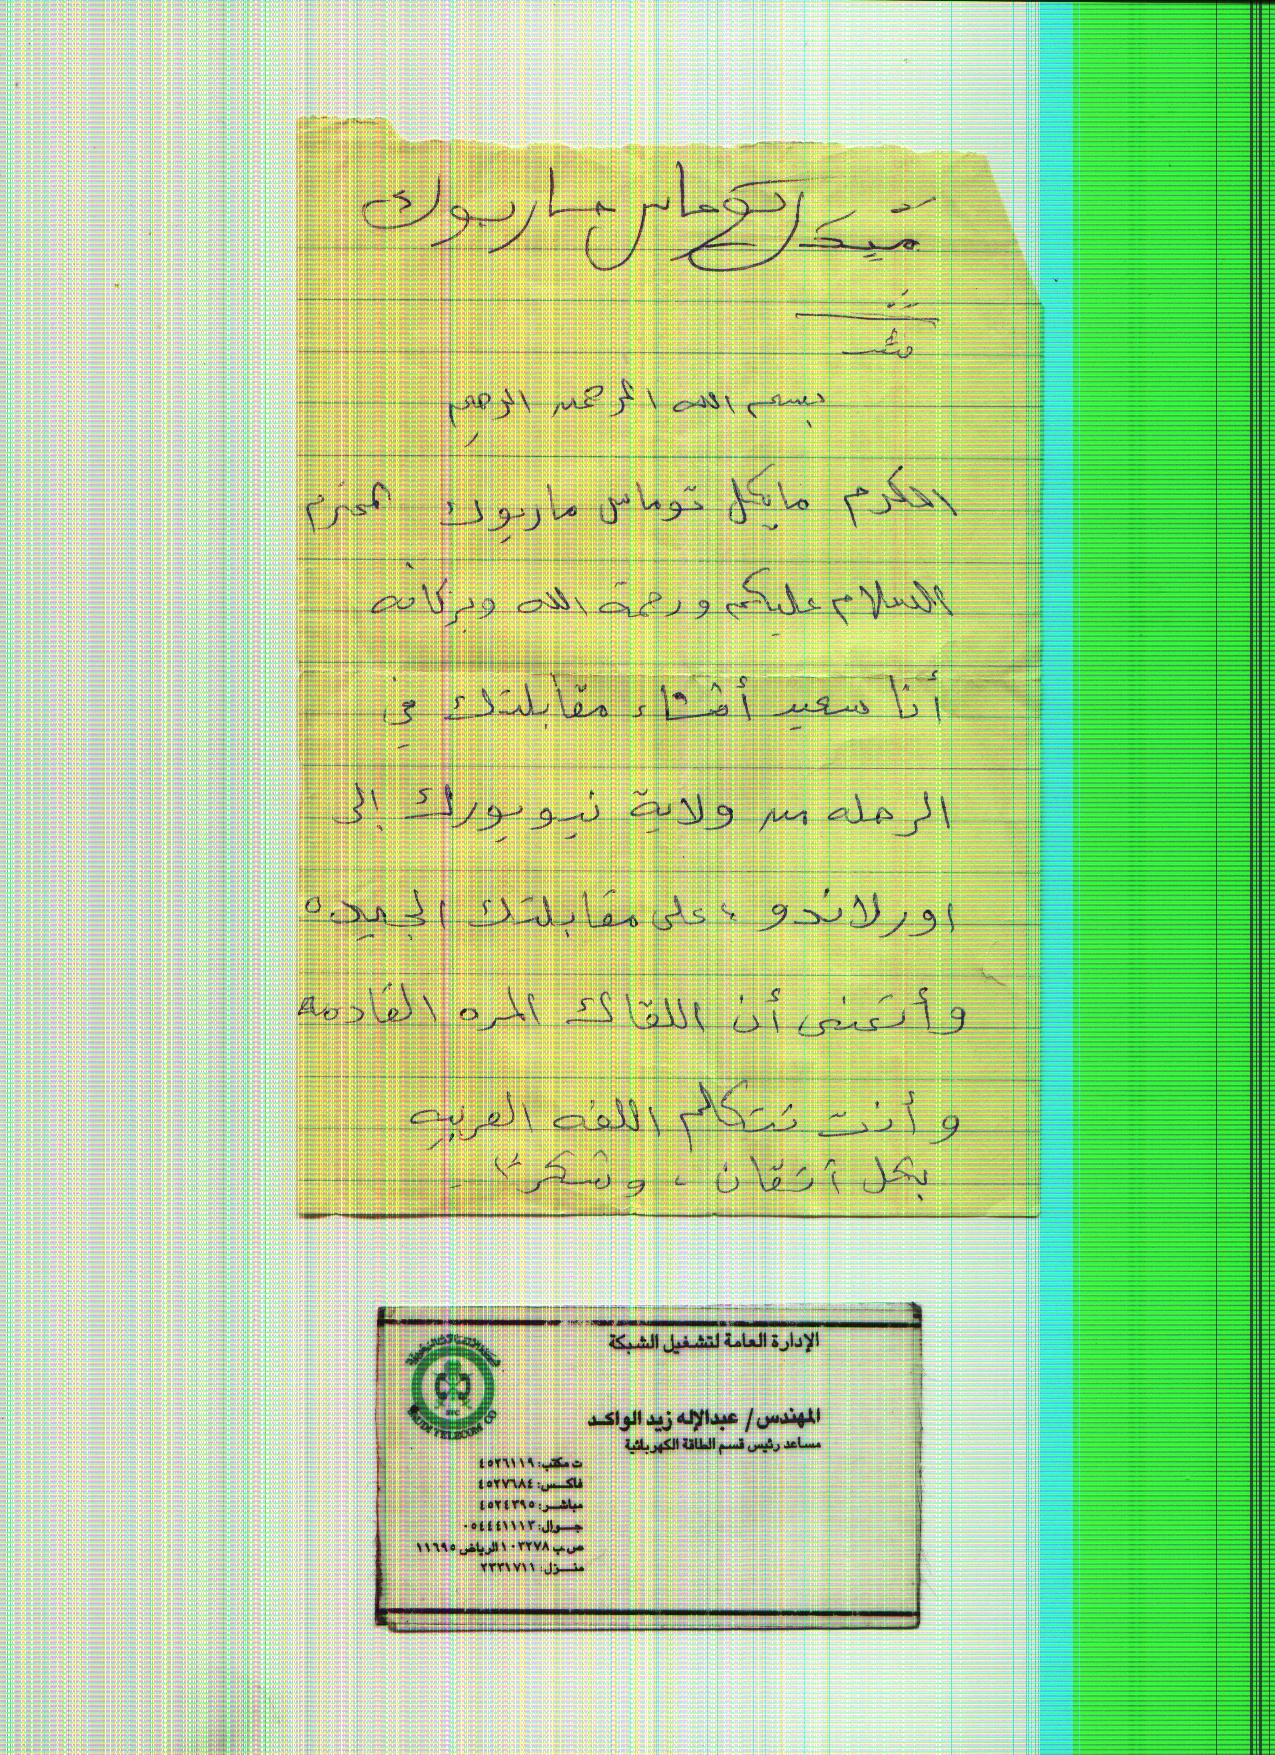 توماس ماربوك
بسم الله الرحمن الرحيم
المكرم مايكل توماس ماربوك المحترم
السلام عليكم ورحمة الله وبركاته
أنا سعيد أثناء مقابلتك في
الرحله من ولاية نيويورك إلى
اورلاندو، على مقابلتك الجميله
وأتمنى أن اللقاك المره القادمه
وأنت تتكالم اللغه العربيه
بكل آتقان، وشكراً
الإدارة العامة لتشغيل الشبكة
المهندس/ عبدالإله زيد الواكد
مساعد رئيس قسم الطاقة الكهربائية
SAUDI TELECOM CO
ت مكتب: ٤٥٢٦١١٩
فاكس: ٤٥٢٧٦٨٤
مباشر: ٤٥٢٤٢٩٥
جوال: ٠٥٤٤٤١١١٣
ص ب ١٠٢٢٧٨ الرياض ١١٦٩٥
منزل: ٢٣٣١٧١١